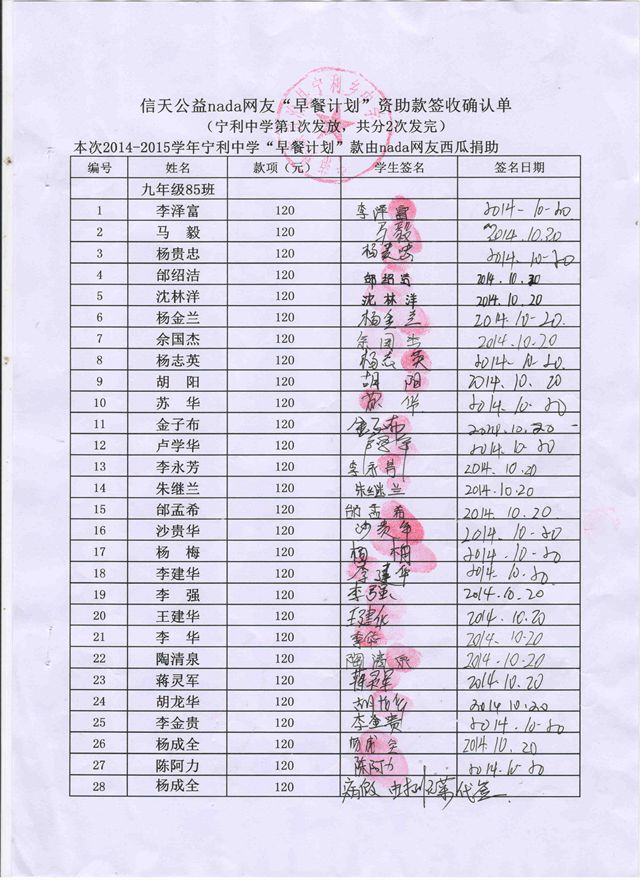 信天公益nada网友“早餐计划”资助款签收确认单
（宁利中学第1次发放，共分2次发完）
本次2014-2015学年宁利中学“早餐计划”款由nada网友西瓜捐助
编号 姓名 款项（元） 学生签名 签名日期
九年级85班
1 李泽富 120 李泽富 2014-10-20
2 马 毅 120 马毅 2014.10.20
3 杨贵忠 120 杨贵忠 2014.10-20
4 邰绍洁 120 邰绍洁 2014.10.20
5 沈林洋 120 沈林洋 2014.10.20
6 杨金兰 120 杨金兰 2014.10-20.
7 佘国杰 120 佘国杰 2014.10-20
8 杨志英 120 杨志英 2014-10-20.
9 胡 阳 120 胡 阳 2014.10.20
10 苏 华 120 苏 华 2014-10-20
11 金子布 120 金子布 2014.10.20
12 卢学华 120 卢学华 2014-10-20
13 李永芳 120 李永芳 2014.10.20
14 朱继兰 120 朱继兰 2014.10.20
15 邰孟希 120 邰孟希 2014.10.20
16 沙贵华 120 沙贵华 2014-10-20
17 杨 梅 120 杨 梅 2014-10-20
18 李建华 120 李建华 2014-10-20
19 李 强 120 李强 2014.10.20
20 王建华 120 王建华 2014.10.20
21 李 华 120 李华 2014.10-20
22 陶清泉 120 陶清泉 2014-10-20
23 蒋灵军 120 蒋灵军 2014.10.20
24 胡龙华 120 胡龙华 2014.10.20
25 李金贵 120 李金贵 2014-10-20
26 杨成全 120 杨成全 2014.10.20
27 陈阿力 120 陈阿力 2014-10-20
28 杨成全 120 病假 由 代签